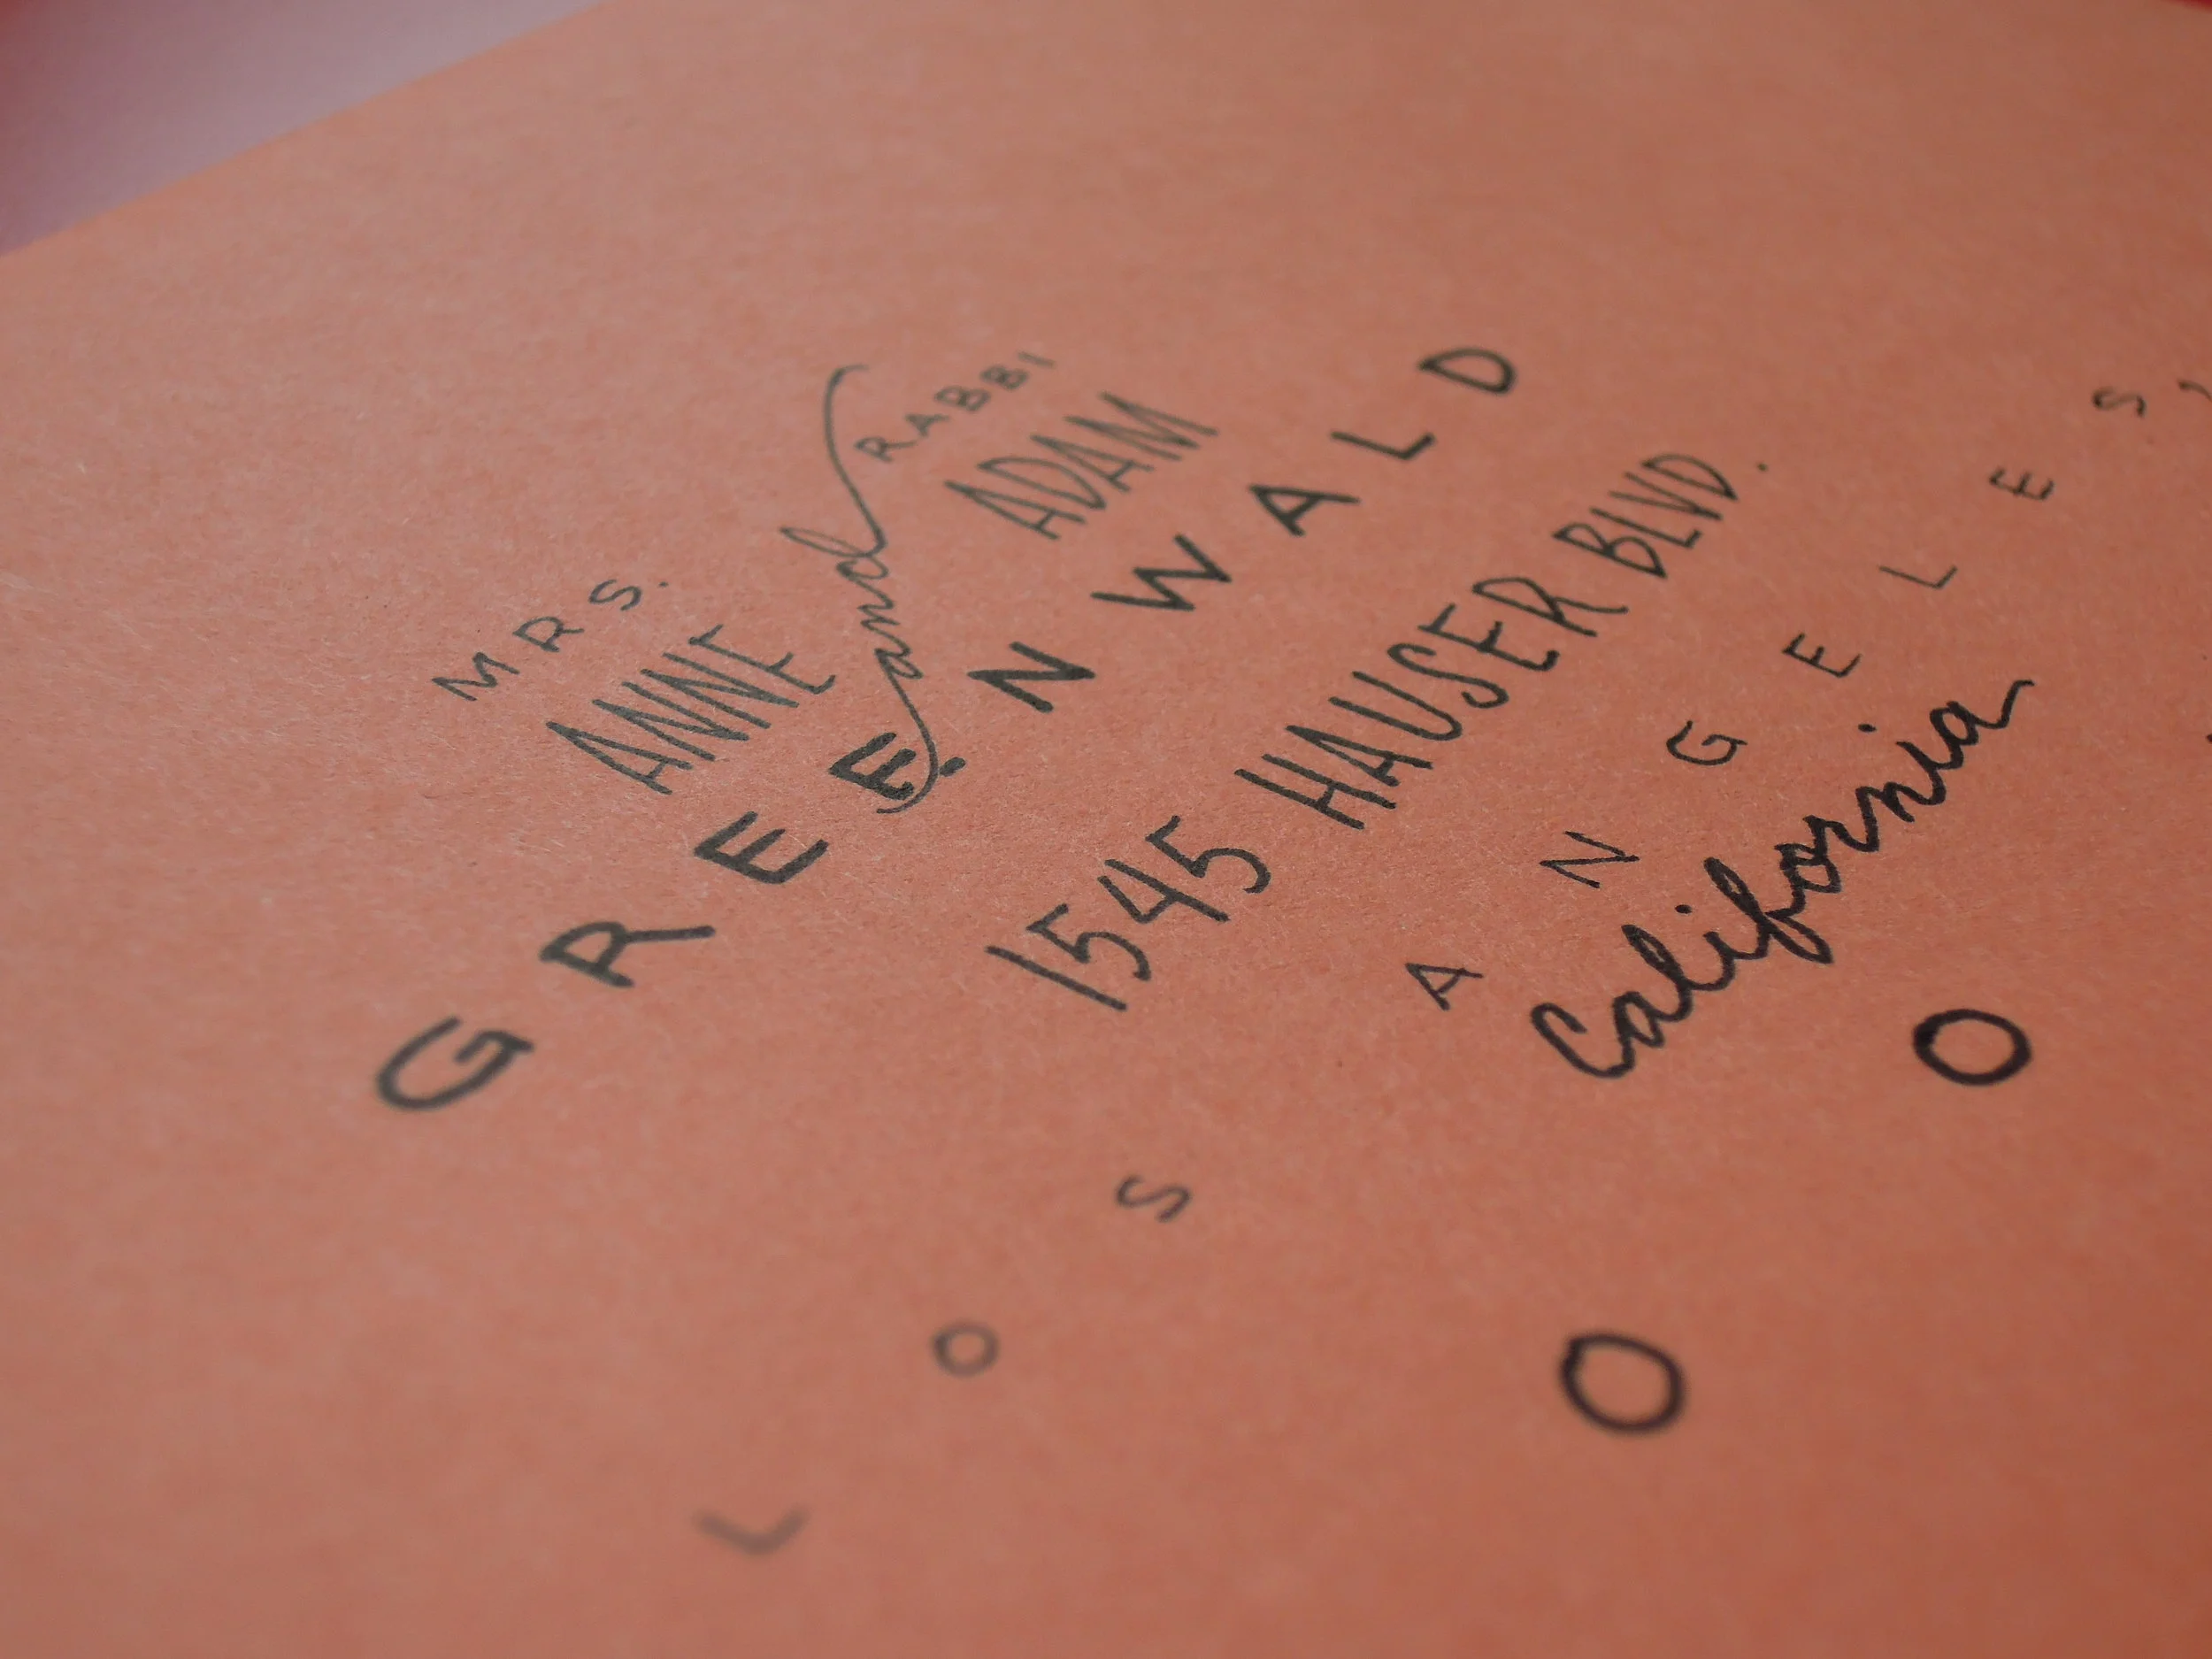 MRS.
ANNE and RABBI ADAM
GREENWALD
1545 HAUSER BLVD.
LOS ANGELES,
California
OO